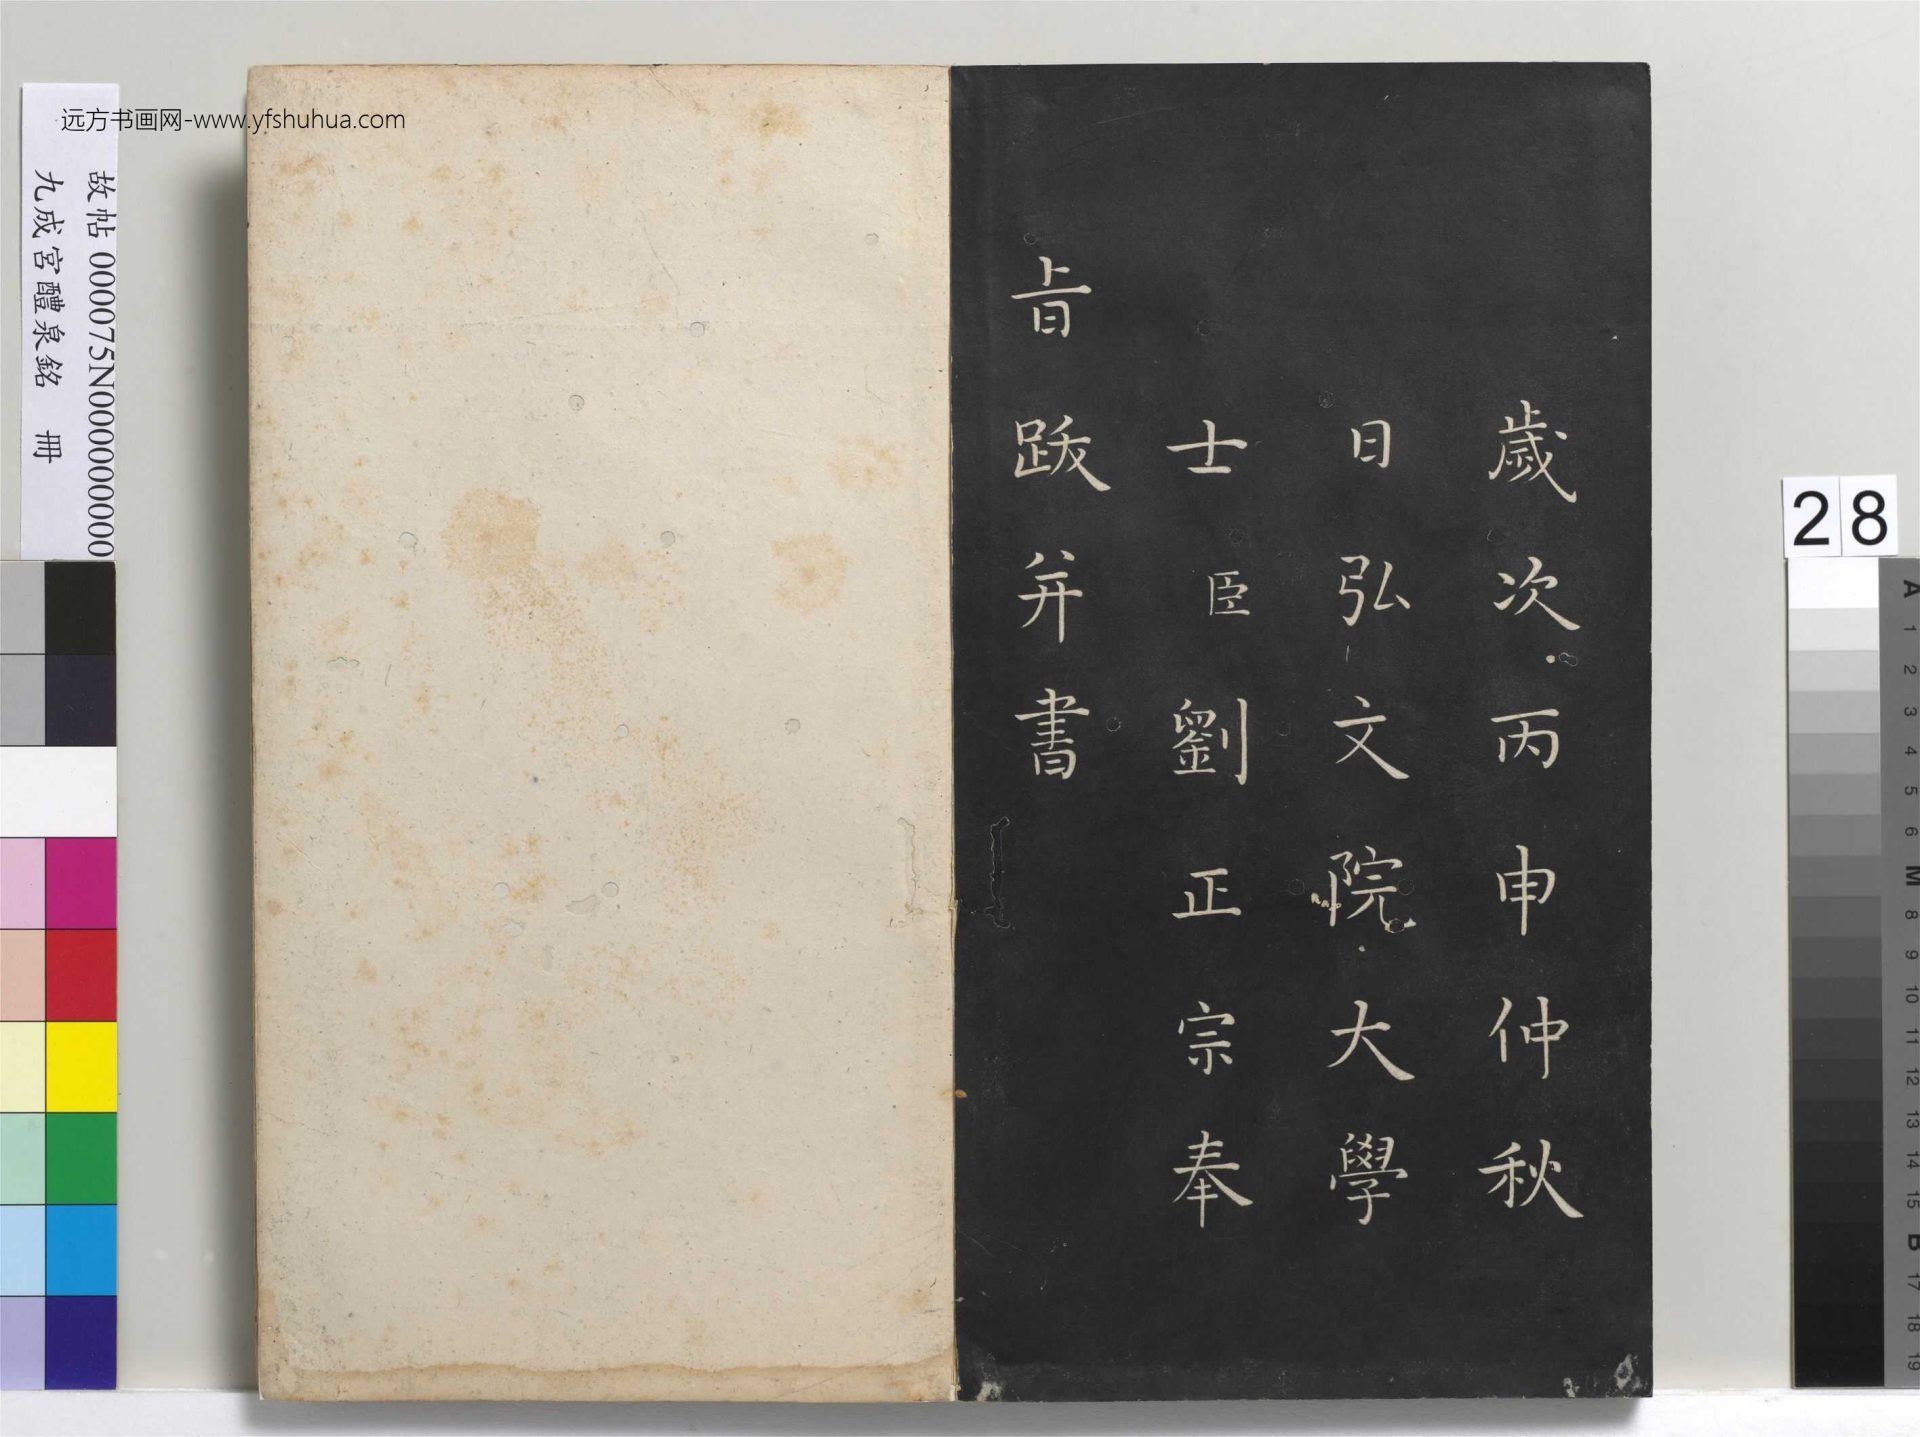 远方书画网-www.yfshuhua.com
故帖 000075N000000000
九成宮醴泉銘 冊
歲次丙申仲秋
日弘文院大學
士臣劉正宗奉
旨跋并書
28
A
1
2
3
4
5
6
M
8
9
10
11
12
13
14
15
B
17
18
19